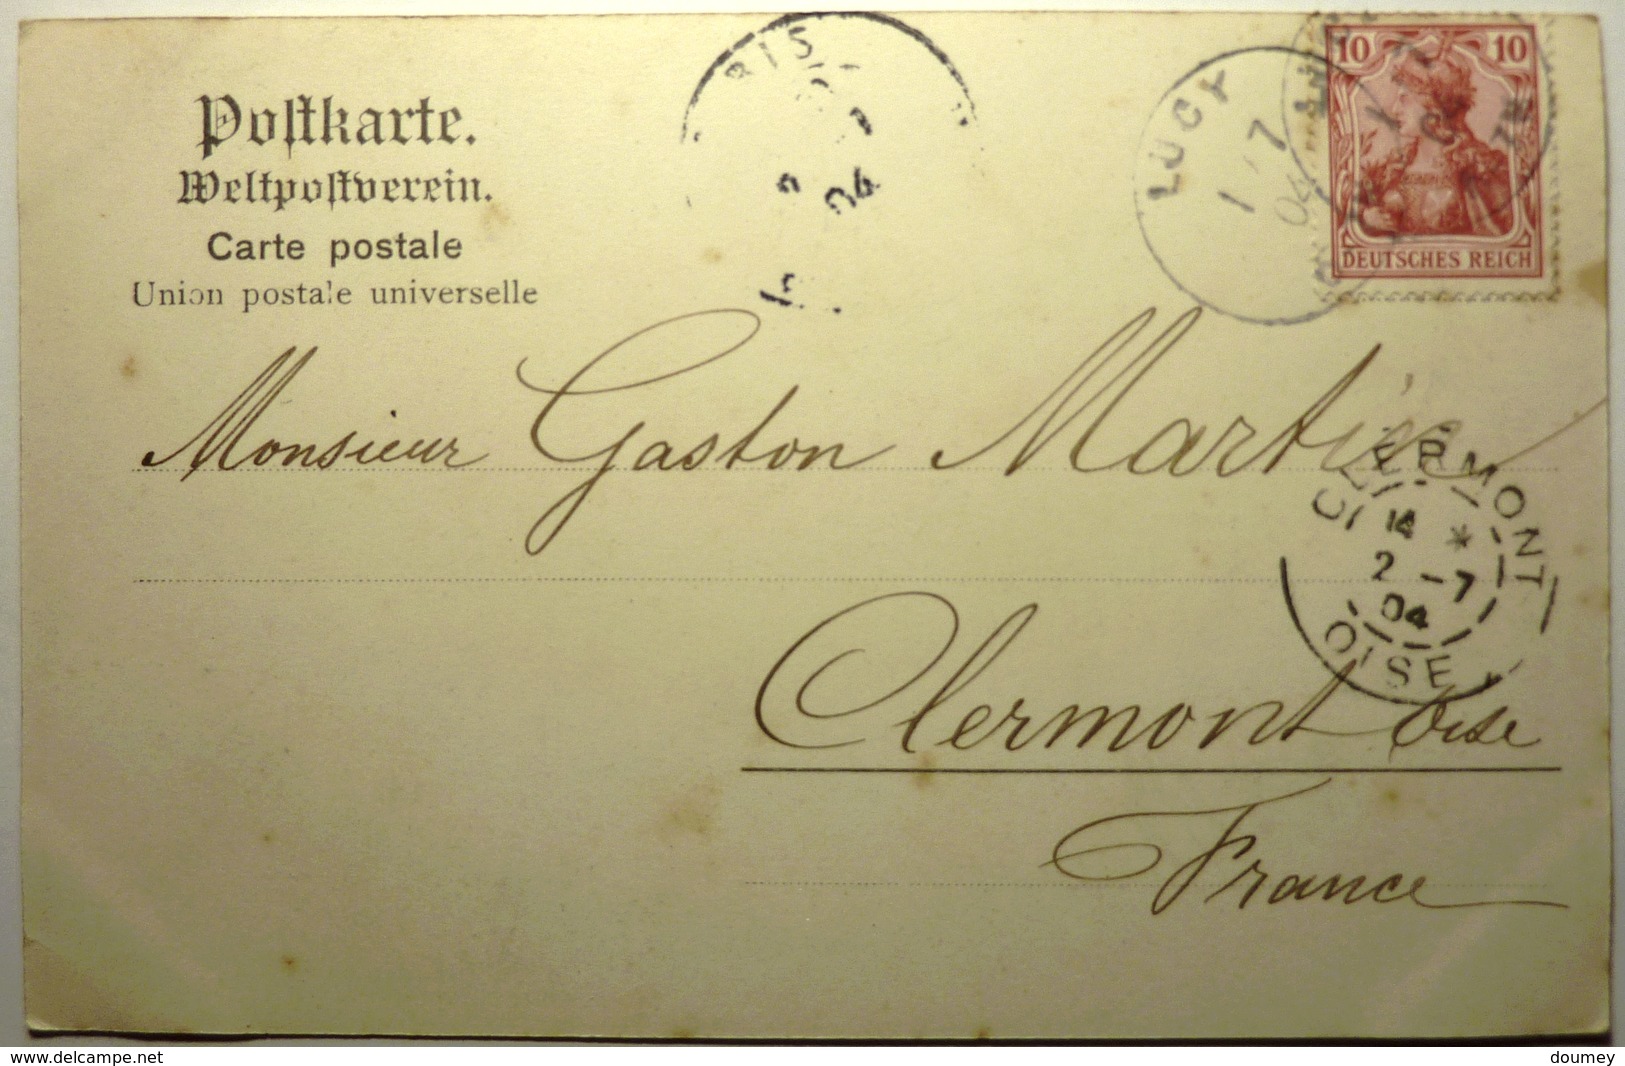 Postkarte.
Weltpostverein.
Carte postale
Union postale universelle
RIS
04
LUCY
1 7
04
10 10
DEUTSCHES REICH
Monsieur Gaston Martin
CLERMONT
2 -7
04
OISE
Clermont Oise
France
www.delcampe.net
doumey